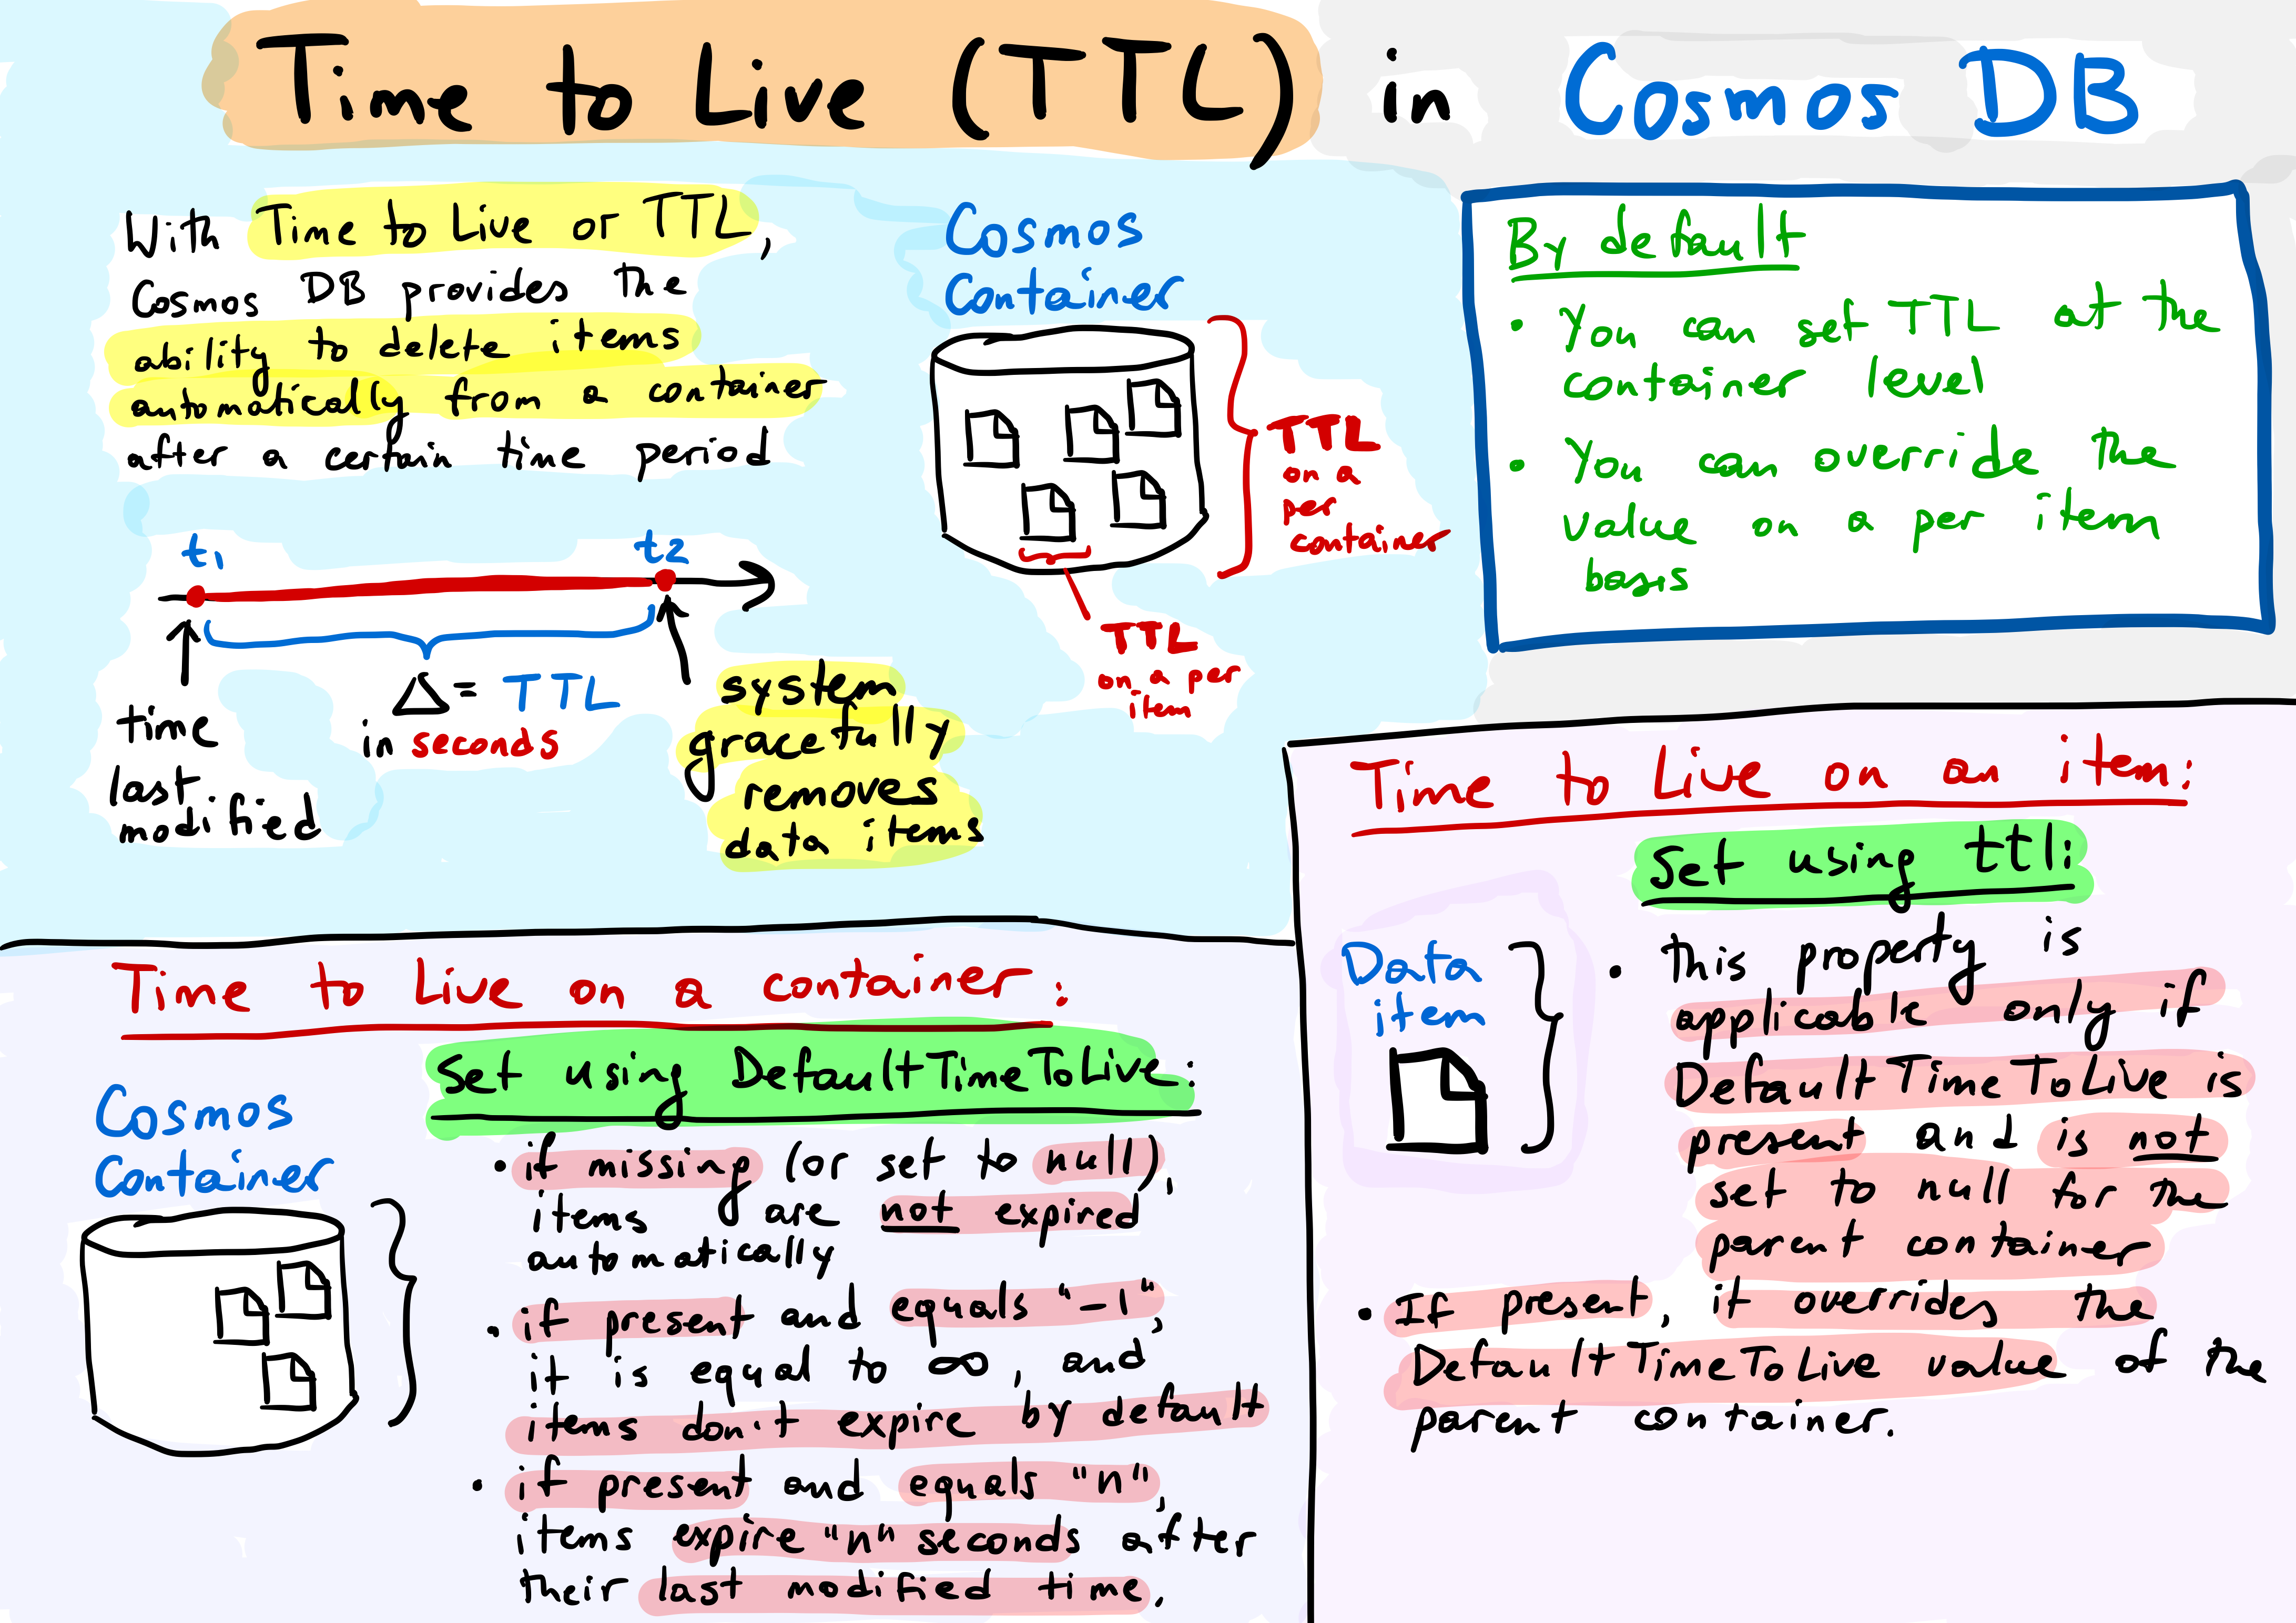 Time to Live (TTL) in Cosmos DB
With Time to Live or TTL,
Cosmos DB provides the
ability to delete items
automatically from a container
after a certain time period
t1
t2
Δ = TTL
in seconds
time
last
modified
system
gracefully
removes
data items
Cosmos
Container
TTL
on a
per
container
TTL
on a per
item
By default
• You can set TTL at the
container level
• You can override the
value on a per item
basis
Time to Live on a container:
Set using DefaultTimeToLive:
Cosmos
Container
• if missing (or set to null),
items are not expired
automatically
• if present and equals "-1",
it is equal to ∞, and
items don't expire by default
• if present and equals "n",
items expire "n" seconds after
their last modified time.
Time to Live on an item:
Set using ttl:
Data
item
• this property is
applicable only if
DefaultTimeToLive is
present and is not
set to null for the
parent container
• If present, it overrides the
DefaultTimeToLive value of the
parent container.